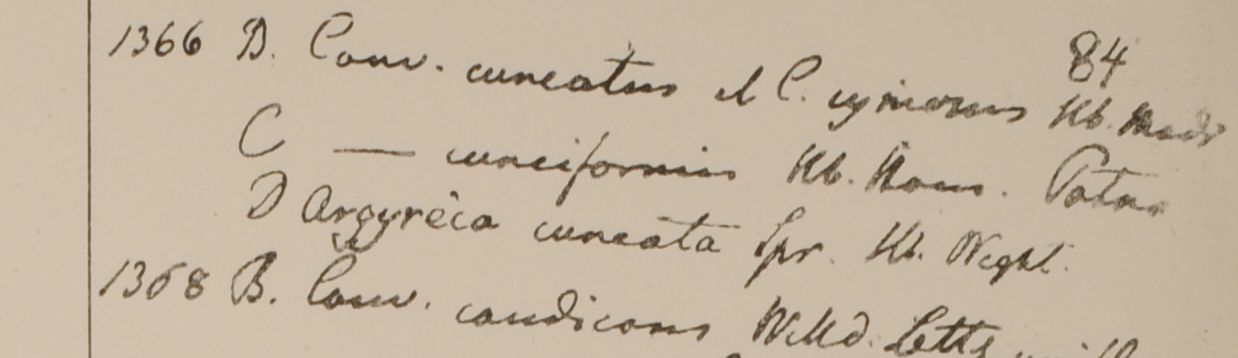 84
1366 B. Conv. cuneatus et C. cymosus Hb. Madr
C — cuneiformis Hb. Ham. Patna
D Argyreia cuneata Spr. Hb. Wight.
1368 B. Conv. candicans Willd. Letts